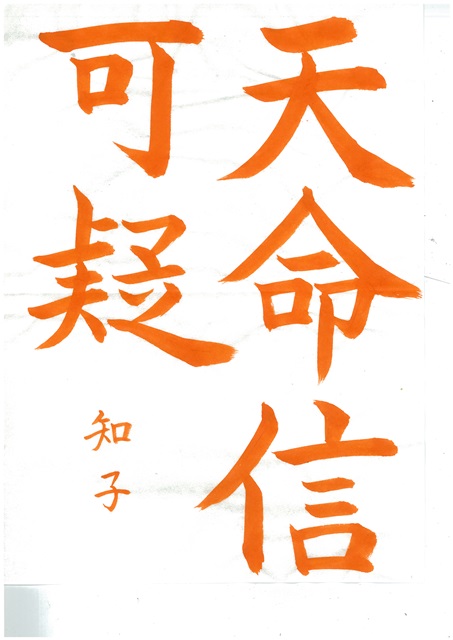 天命信
可疑
知子